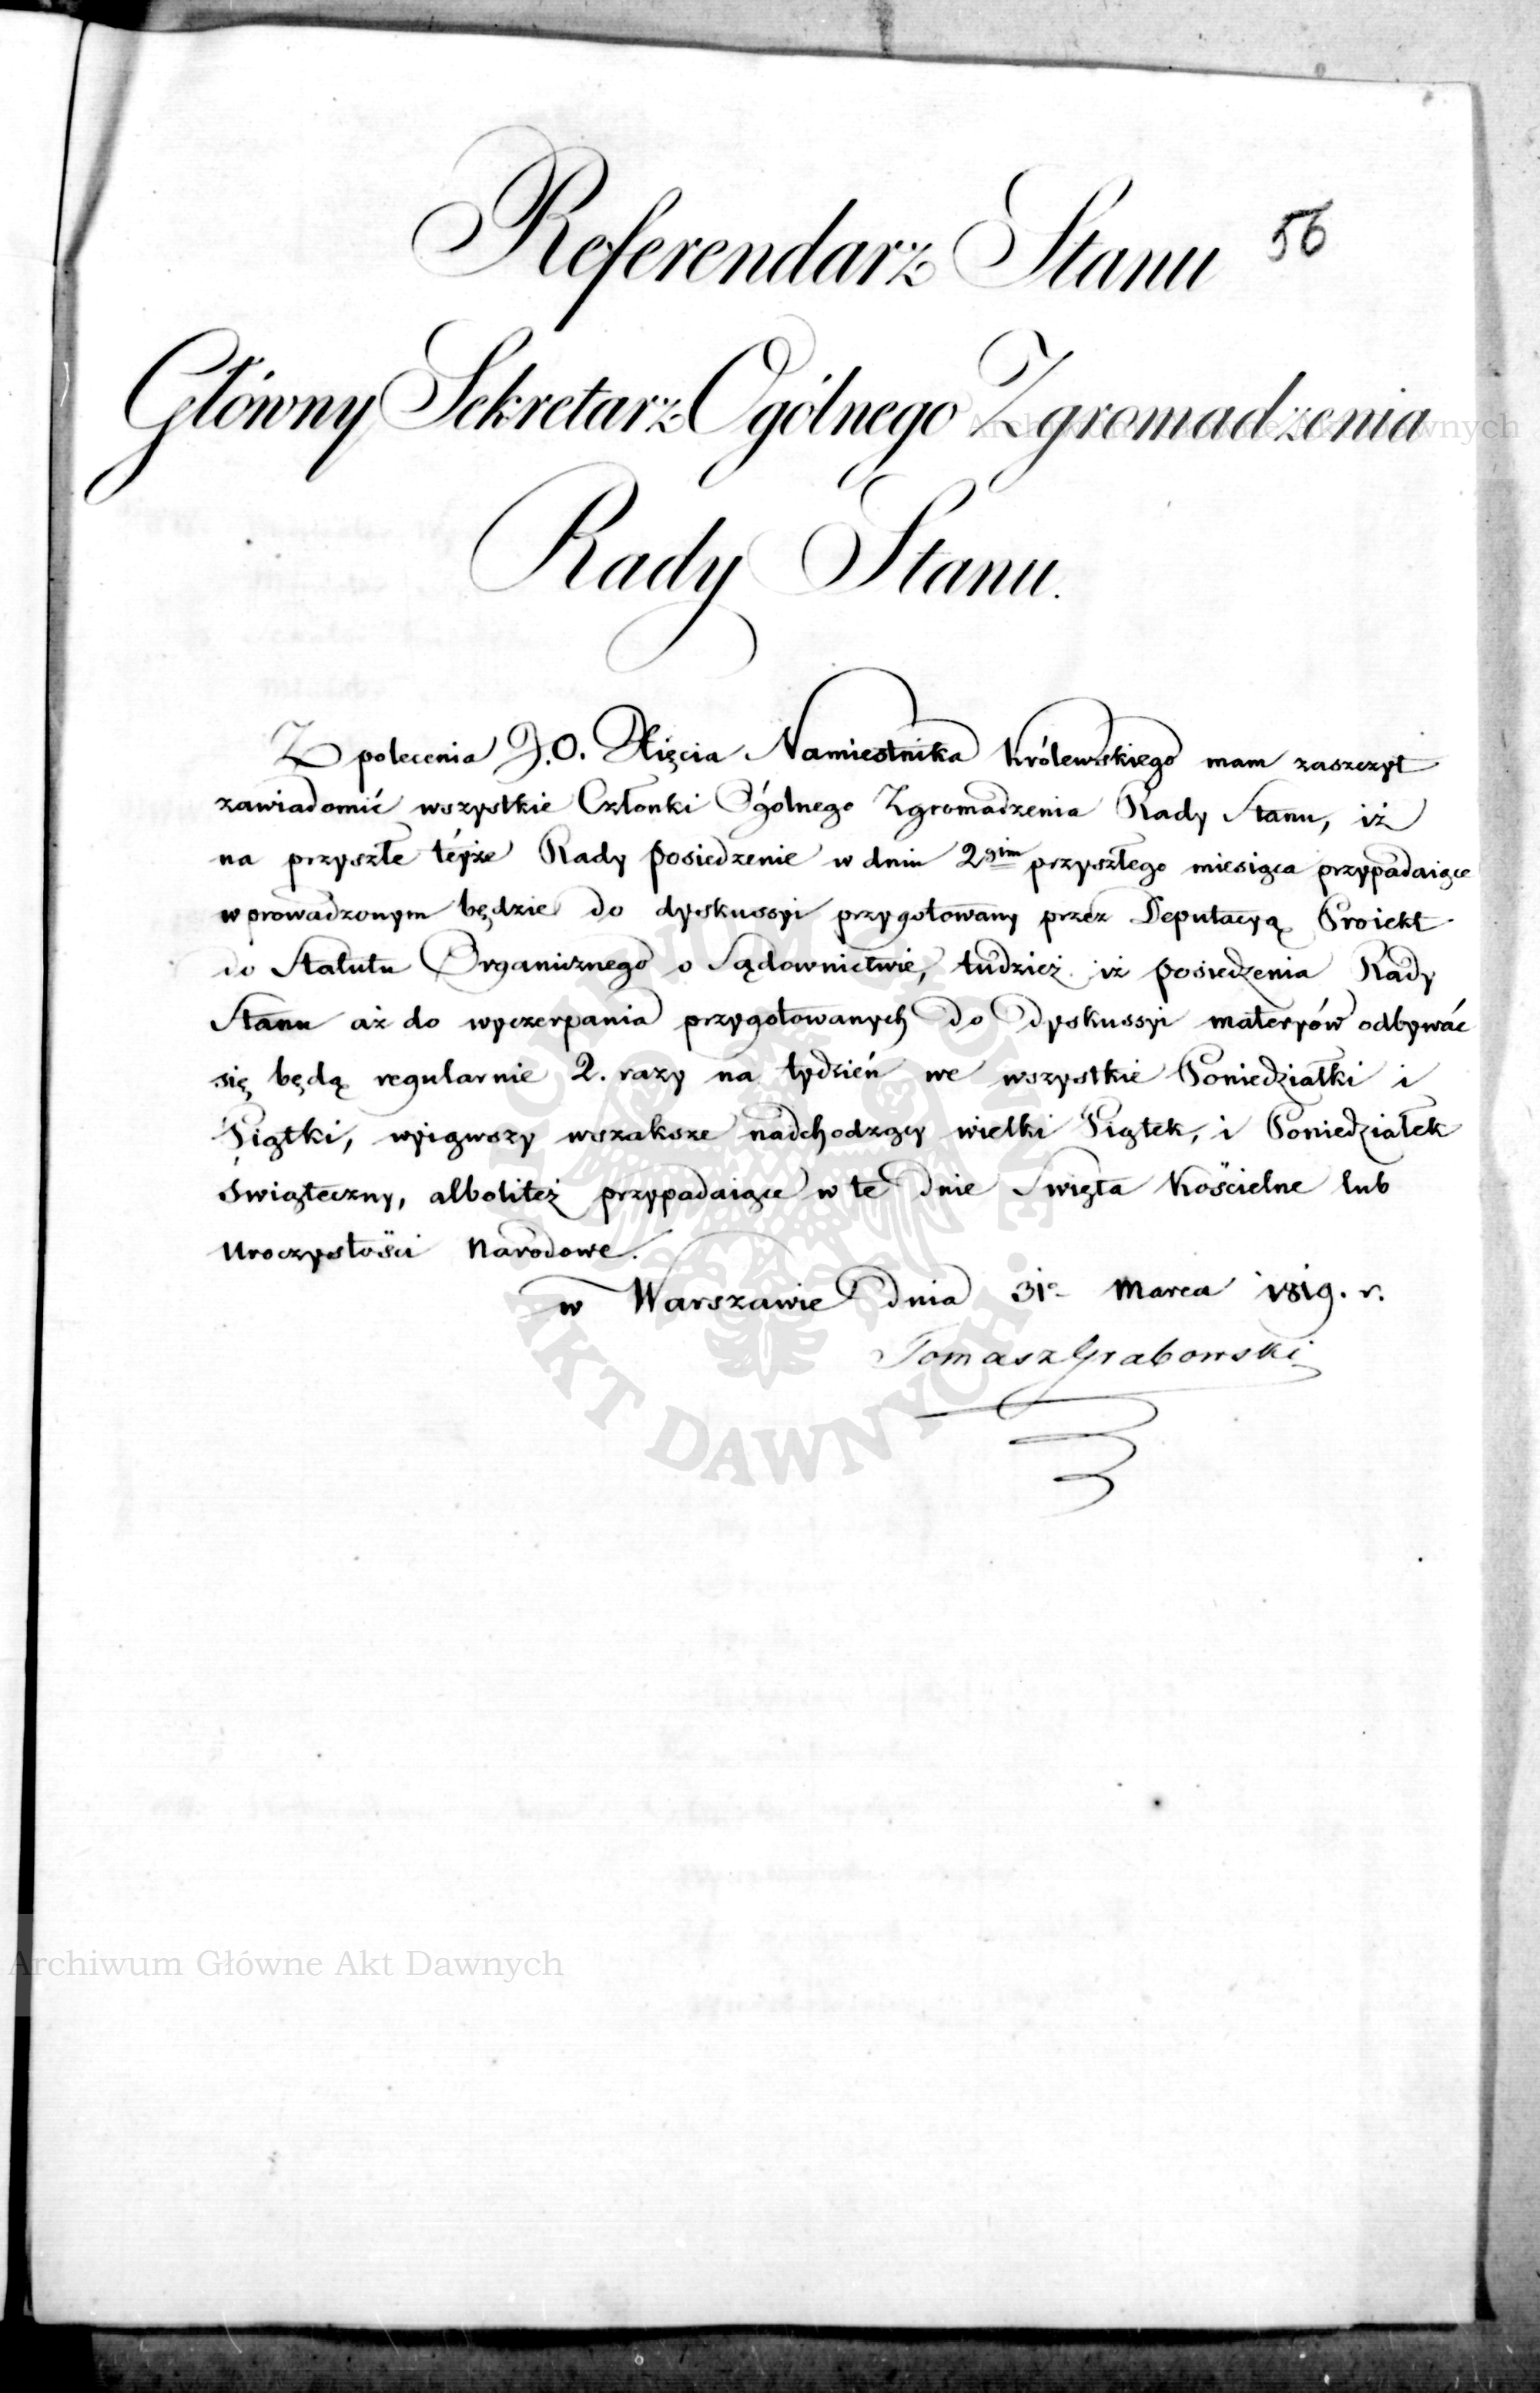 Referendarz Stanu 56
Główny Sekretarz Ogólnego Zgromadzenia
Rady Stanu.
Z polecenia J.O. Xięcia Namiestnika Królewskiego mam zaszczyt
zawiadomić wszystkie Członki Ogólnego Zgromadzenia Rady Stanu, iż
na przyszłe téyże Rady Posiedzenie w dniu 2gim przyszłego miesiąca przypadaiące
wprowadzonym będzie do dyskussyi przygotowany przez Deputacyą Proiekt
do Statutu Organicznego o Sądownictwie, tudzież iż posiedzenia Rady
Stanu aż do wyczerpania przygotowanych do dyskussyi materyów odbywać
się będą regularnie 2. razy na tydzień we wszystkie Poniedziałki i
Piątki, wyiąwszy wszakże nadchodzący wielki Piątek, i Poniedziałek
Świąteczny, albolitéż przypadaiące w te dnie Swięta Kościelne lub
Uroczystości Narodowe.
w Warszawie dnia 31o Marca 1819. r.
Tomasz Grabowski
Archiwum Główne Akt Dawnych
Archiwum Główne Akt Dawnych
ARCHIWUM GŁÓWNE AKT DAWNYCH